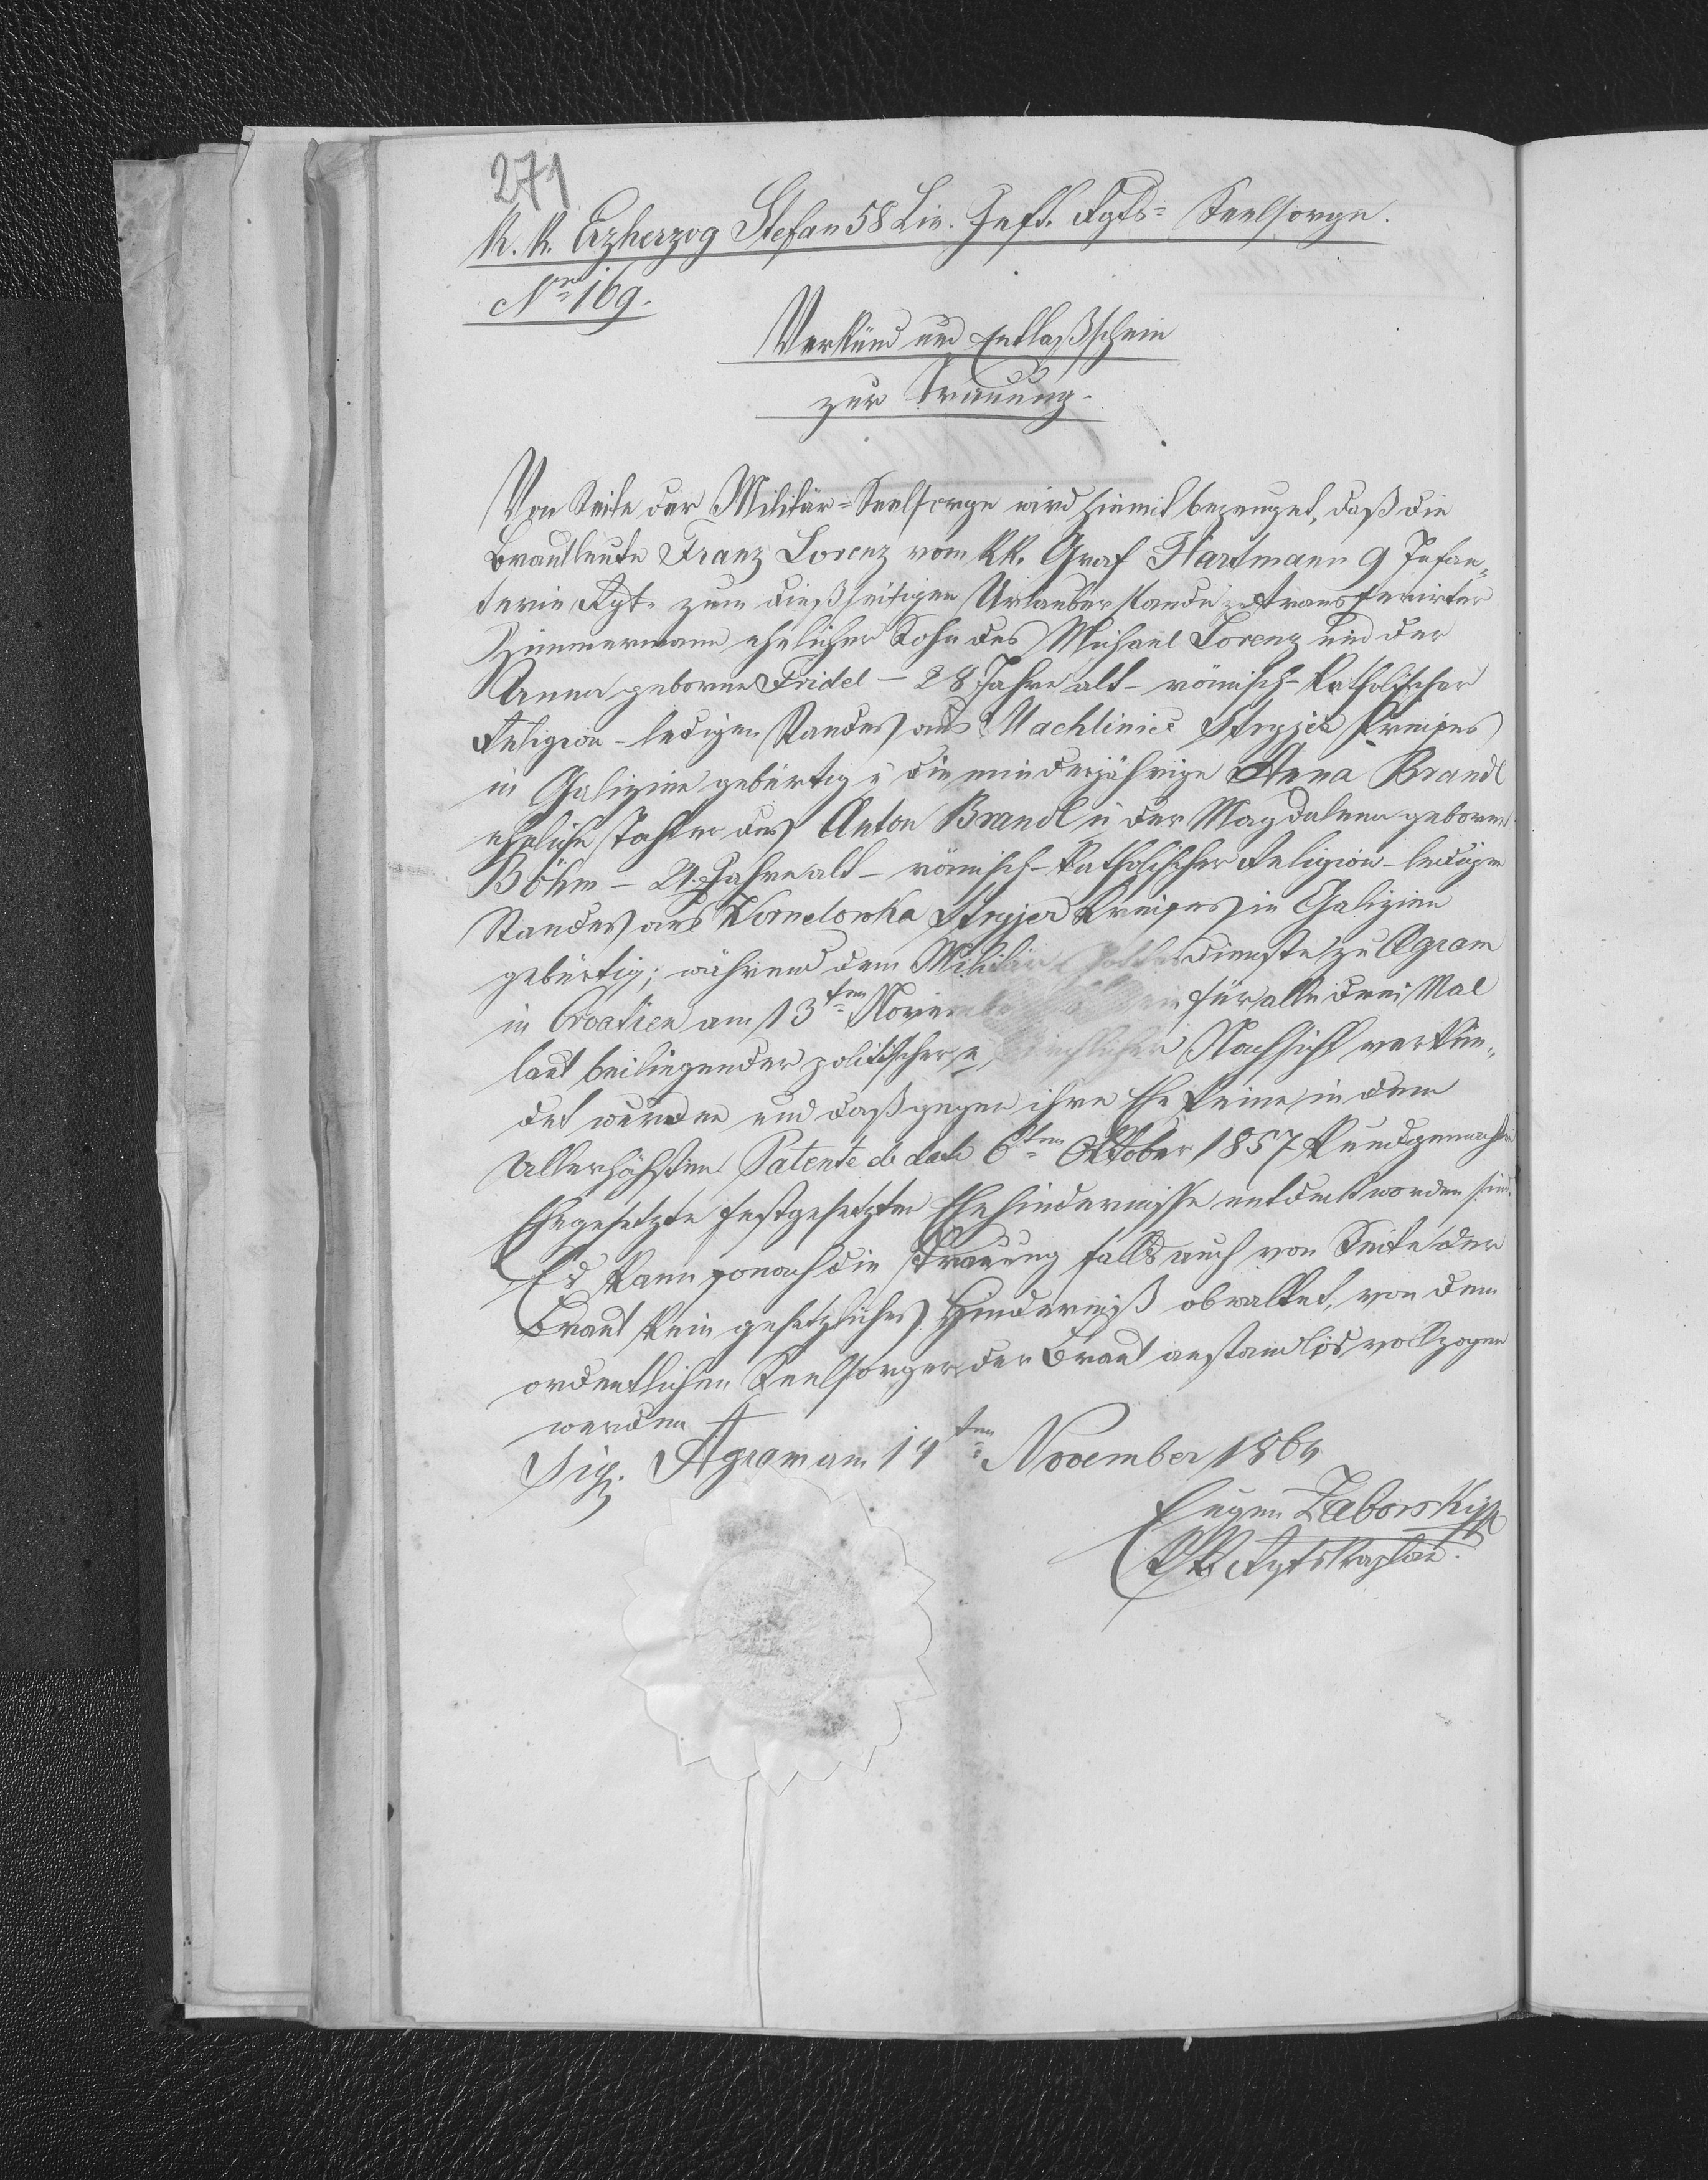 271
K. K. Erzherzog Stefan 58 Lin. Inft. Rgts= Seelsorge.
Nro 169.
Verkünd und Entlaßschein
zur Trauung.
Von Seite der Militär=Seelsorge wird hiemit bezeuget, daß die
Brautleute Franz Lorenz vom KK. Graf Hartmann 9 Infan„
terie Rgt. zum dießseitigen Urlauberstande transferirter
Zimmermann ehelicher Sohn des Michael Lorenz und der
Anna geborne Fridel – 28 Jahre alt – römisch-katholischer
Religion – ledigen Standes aus Machlinice Stryjer Kreises
in Galizien gebürtig u die minderjährige Anna Brandl
eheliche Tochter des Anton Brandl u der Magdalena geborne
Böhm – 21 Jahre alt – römisch-katholischer Religion – ledigen
Standes aus Kornelowka Stryjer Kreises in Galizien
gebürtig; während dem Militär Gottesdienste zu Agram
in Croatien am 13ten November ein für alle drei Mal
laut beiliegender politischer u kirchlichen Nachsicht verkün„
det wurden und daß gegen ihre Ehe keine in dem
Allerhöchsten Patente de dato 6ten Oktober 1857 kundgemachten
Ehegesetzte festgesetzten Ehehindernisse entdeckt worden sind.
Es kann sonach die Trauung falls auch von Seite der
Braut kein gesetzliches Hinderniß obwaltet, von dem
ordentlichen Seelsorger der Braut anstandlos vollzogen
werden
Sig. Agram am 14ten November 1864
Eugen Zaborsky
KK Rgtskaplan.